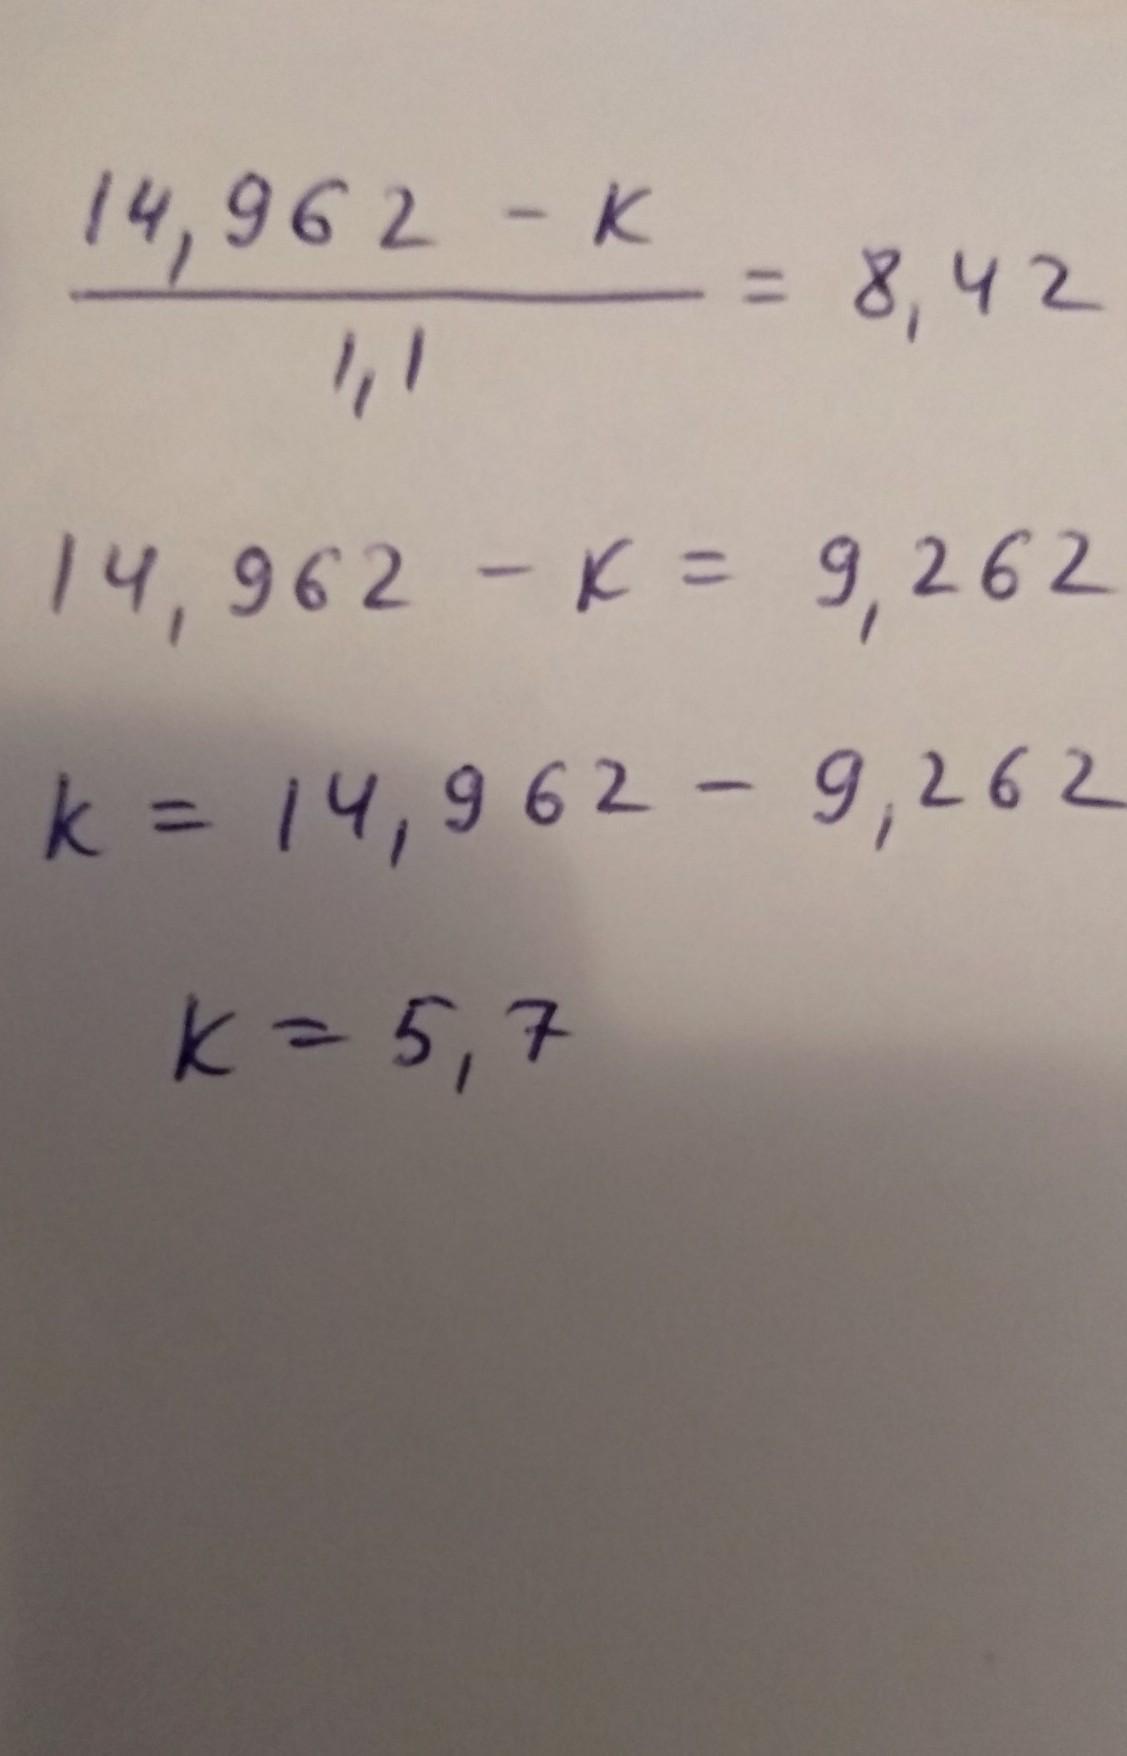 14,962 - k
= 8,42
1,1
14,962 - k = 9,262
k = 14,962 - 9,262
k = 5,7